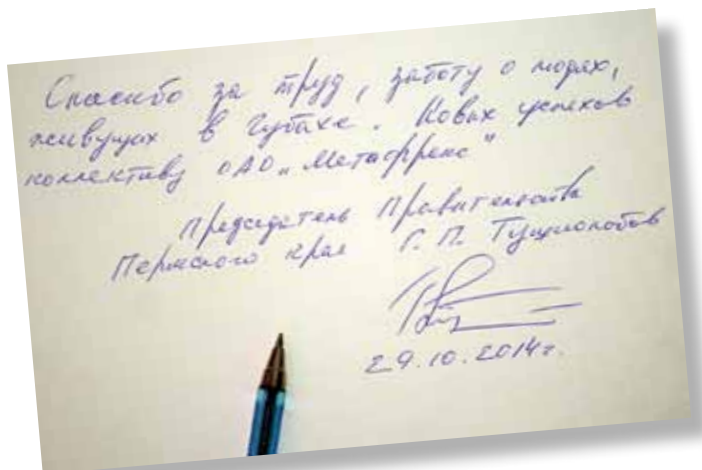 Спасибо за труд, заботу о людях,
живущих в Губахе. Новых успехов
коллективу ОАО „Метафракс"
Председатель Правительства
Пермского края Г. П. Тушнолобов
29.10.2014г.